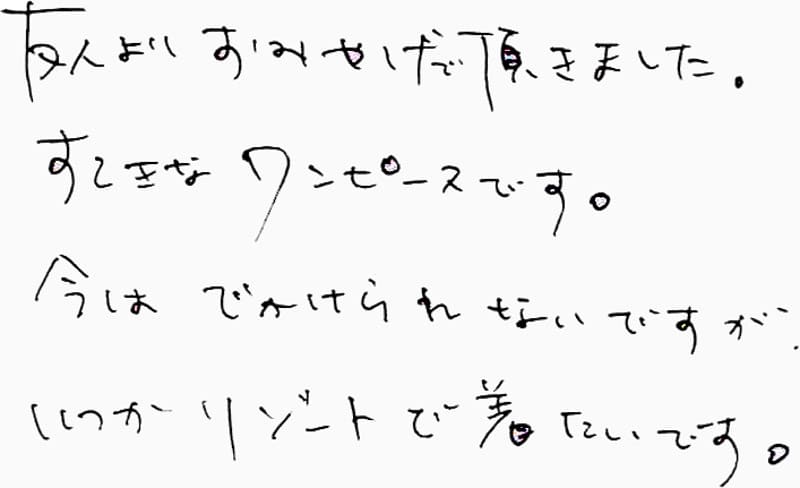 友人よりおみやげで頂きました.
すてきなワンピースです。
今はでかけられないですが.
いつかリゾートで着たいです。